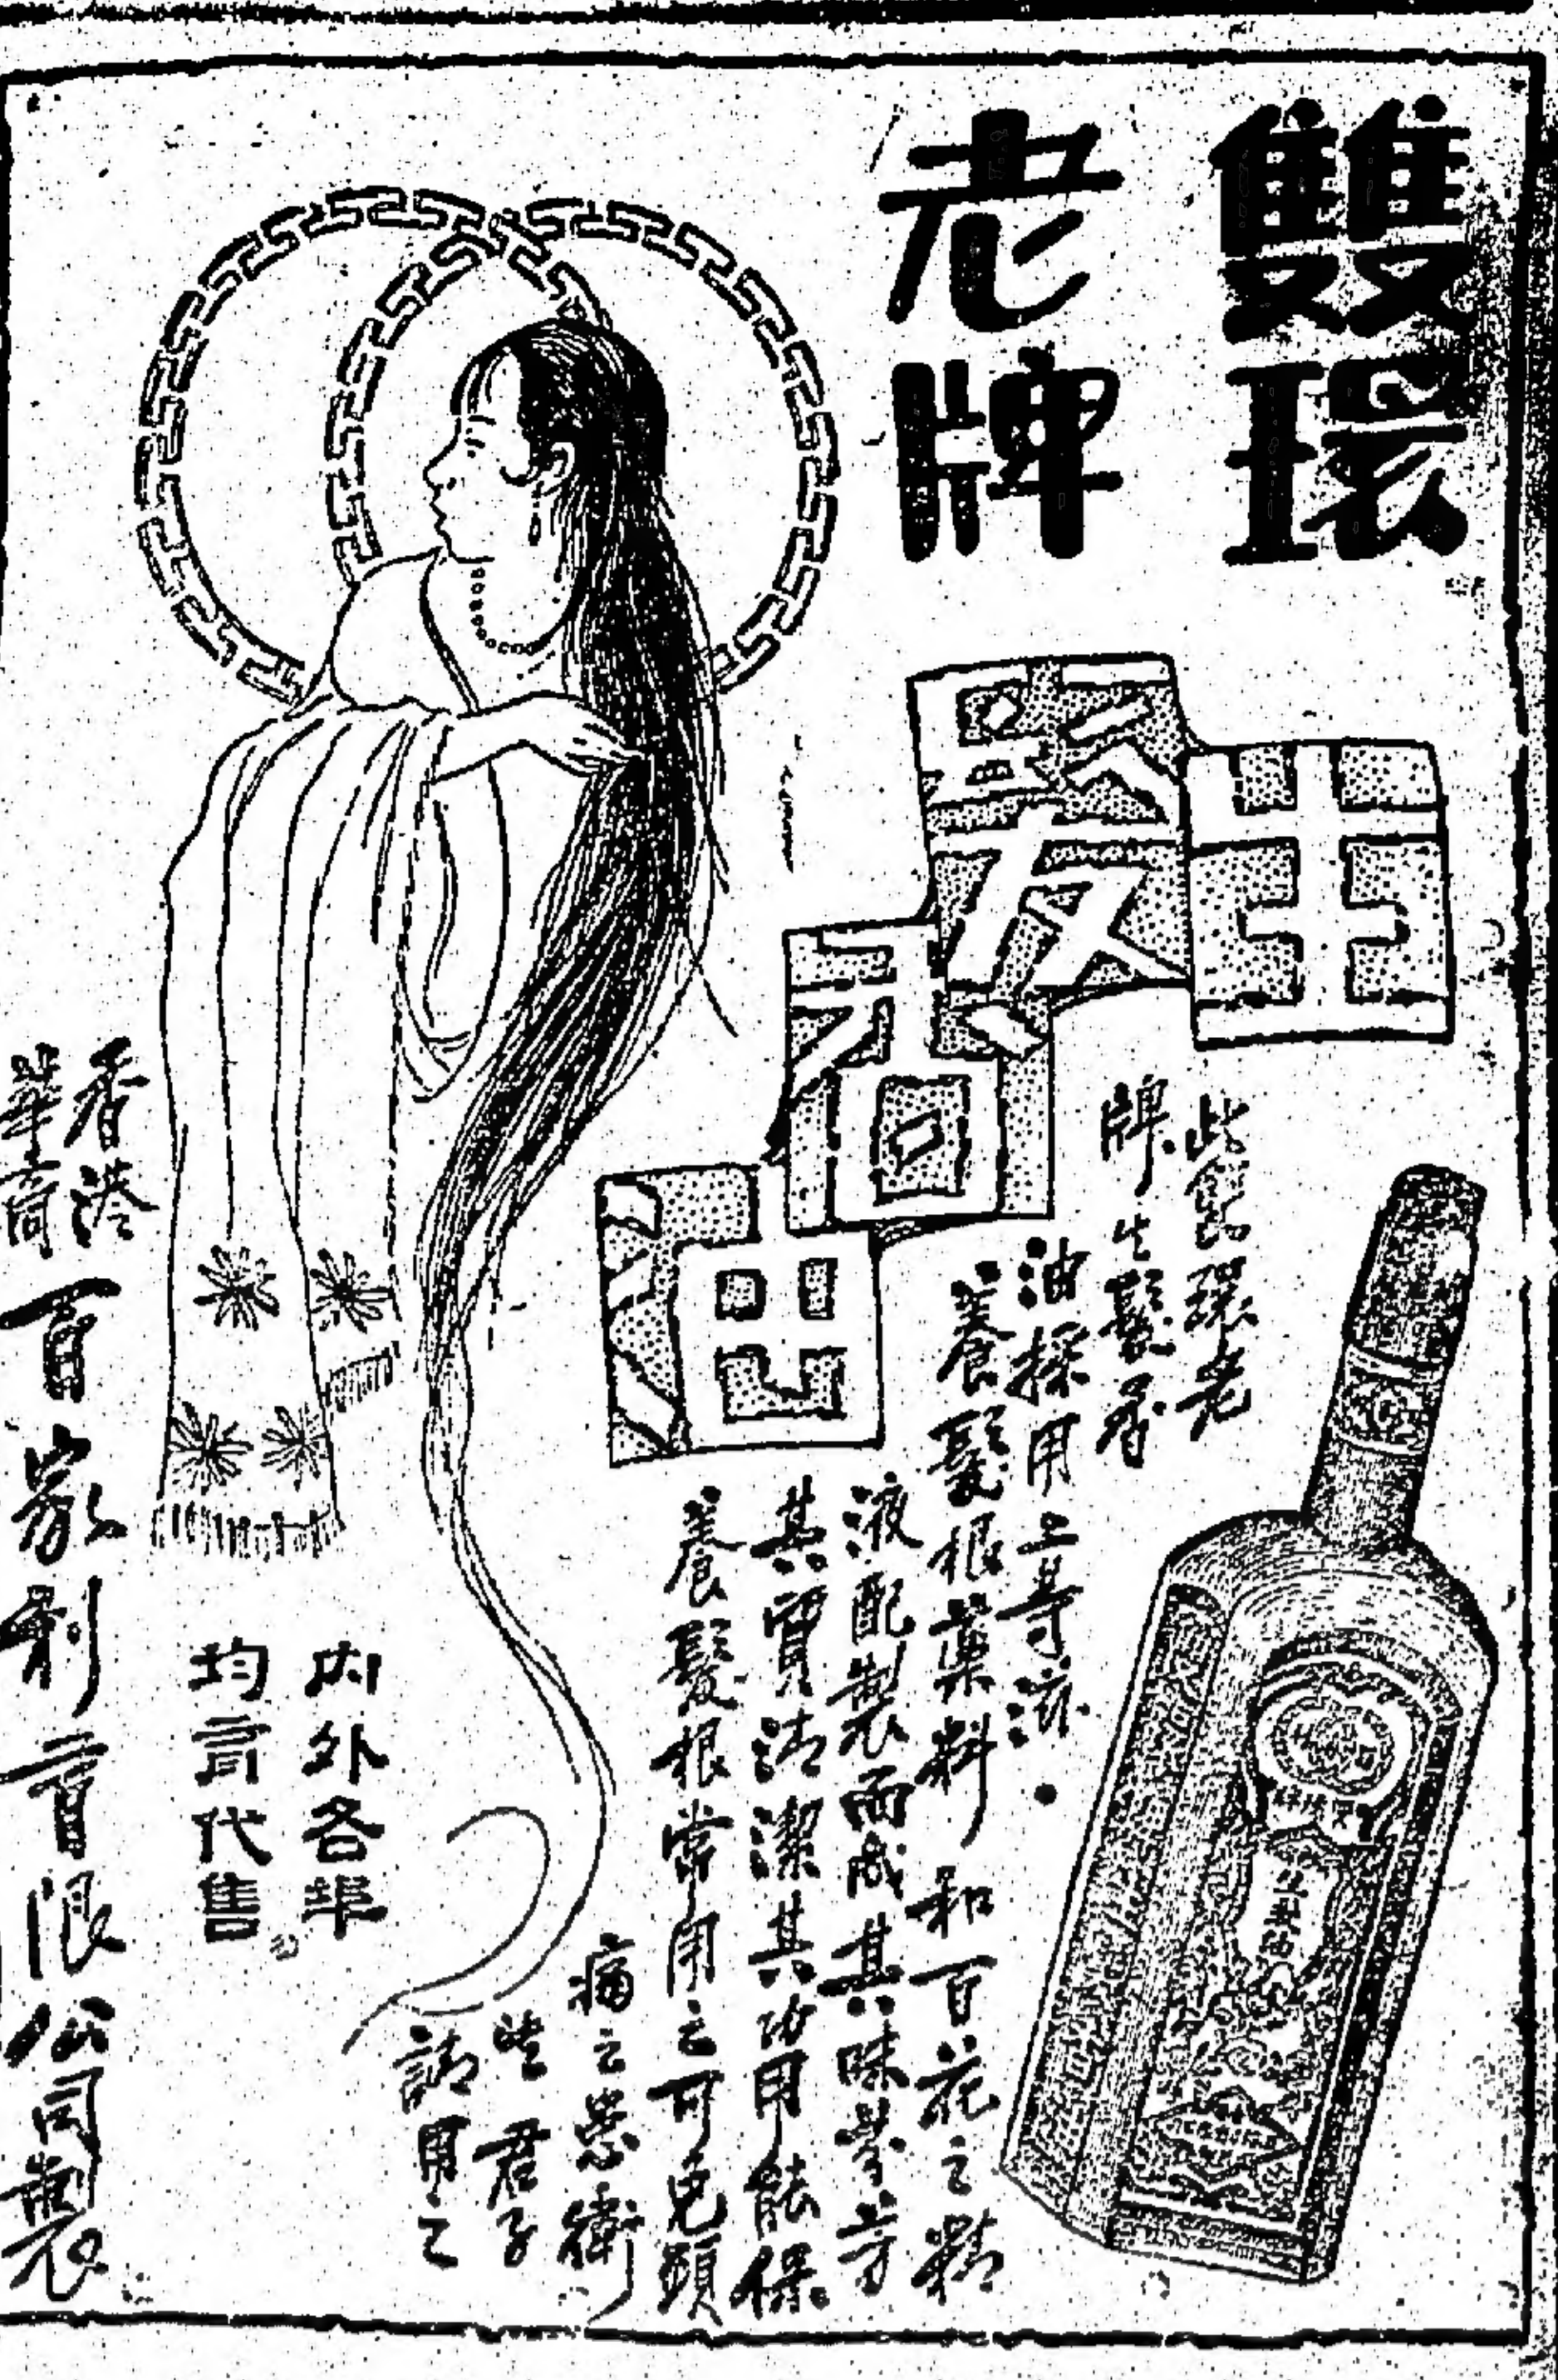 雙環
老牌
生髮香油
此雙環老
牌生髮香
油採用上等滋
養髮根藥料和百花之精
液配製而成其味芬芳
其質清潔其功用能保
養髮根常用之可免頭
痛之患衛
生君子
請用之
內外各埠
均有代售
香港
華商
百家利有限公司製